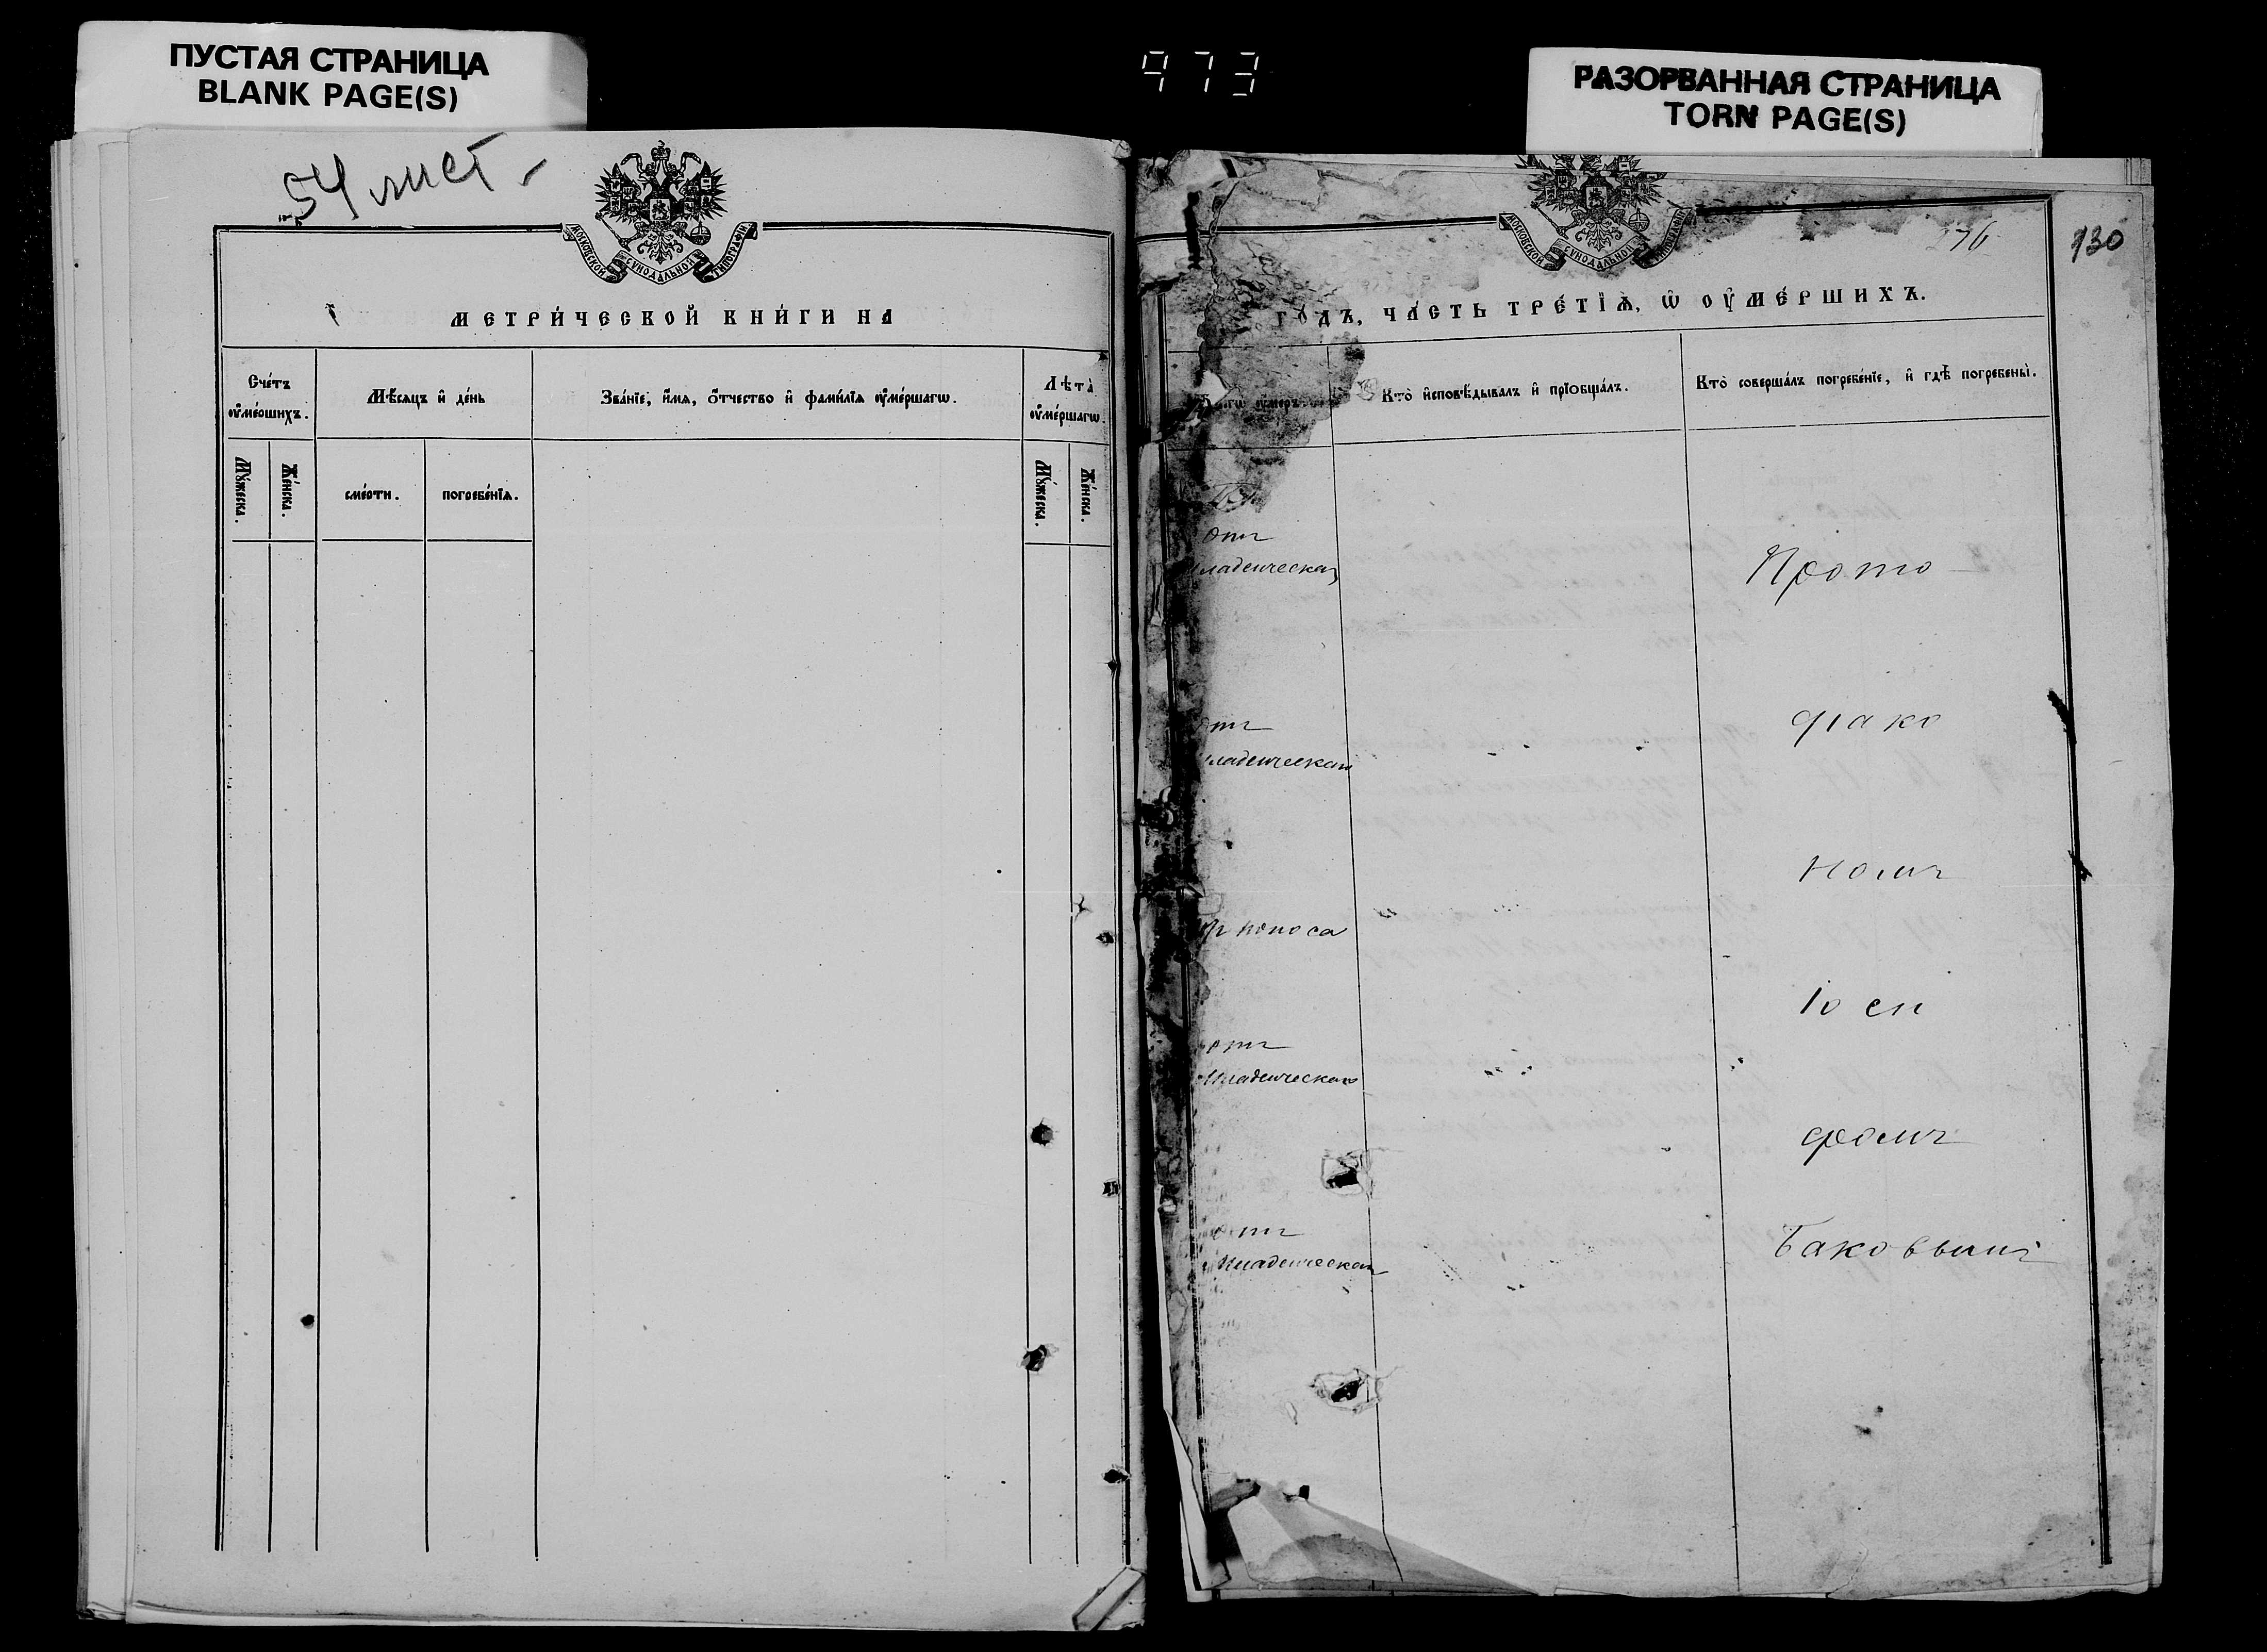 ПУСТАЯ СТРАНИЦА
BLANK PAGE(S)
973
РАЗОРВАННАЯ СТРАНИЦА
TORN PAGE(S)
54 лист
МОСКОВСКОЙ СѴНОДАЛЬНОЙ ТИПОГРАФІИ
МЕТРИ́ЧЕСКОЙ КНИ́ГИ НА
Сче́тъ ᲂу҆ме́ршихъ.
Мѣ́сяцъ и҆ де́нь
Зва́нїе, и҆́мѧ, ѻ҆́тчество и҆ фами́лїѧ ᲂу҆ме́ршагѡ.
Лѣ́та ᲂу҆ме́ршагѡ.
Мꙋ́жеска.
Же́нска.
сме́рти.
погребе́нїѧ.
Мꙋ́жеска.
Же́нска.
МОСКОВСКОЙ СѴНОДАЛЬНОЙ ТИПОГРАФІИ
130
ГО́ДЪ, ЧА́СТЬ ТРЕ́ТЇѦ, Ѡ҆ ОУ҆МЕ́РШИХЪ.
Кто̀ и҆сповѣ́дывалъ и҆ прїѡбща́лъ.
Кто̀ соверша́лъ погребе́нїе, и҆ гдѣ̀ погребены̀.
отъ
младенческая
Прото
отъ
младенческая
поноса
Іоси
отъ
Младенческая
отъ
Младенческая